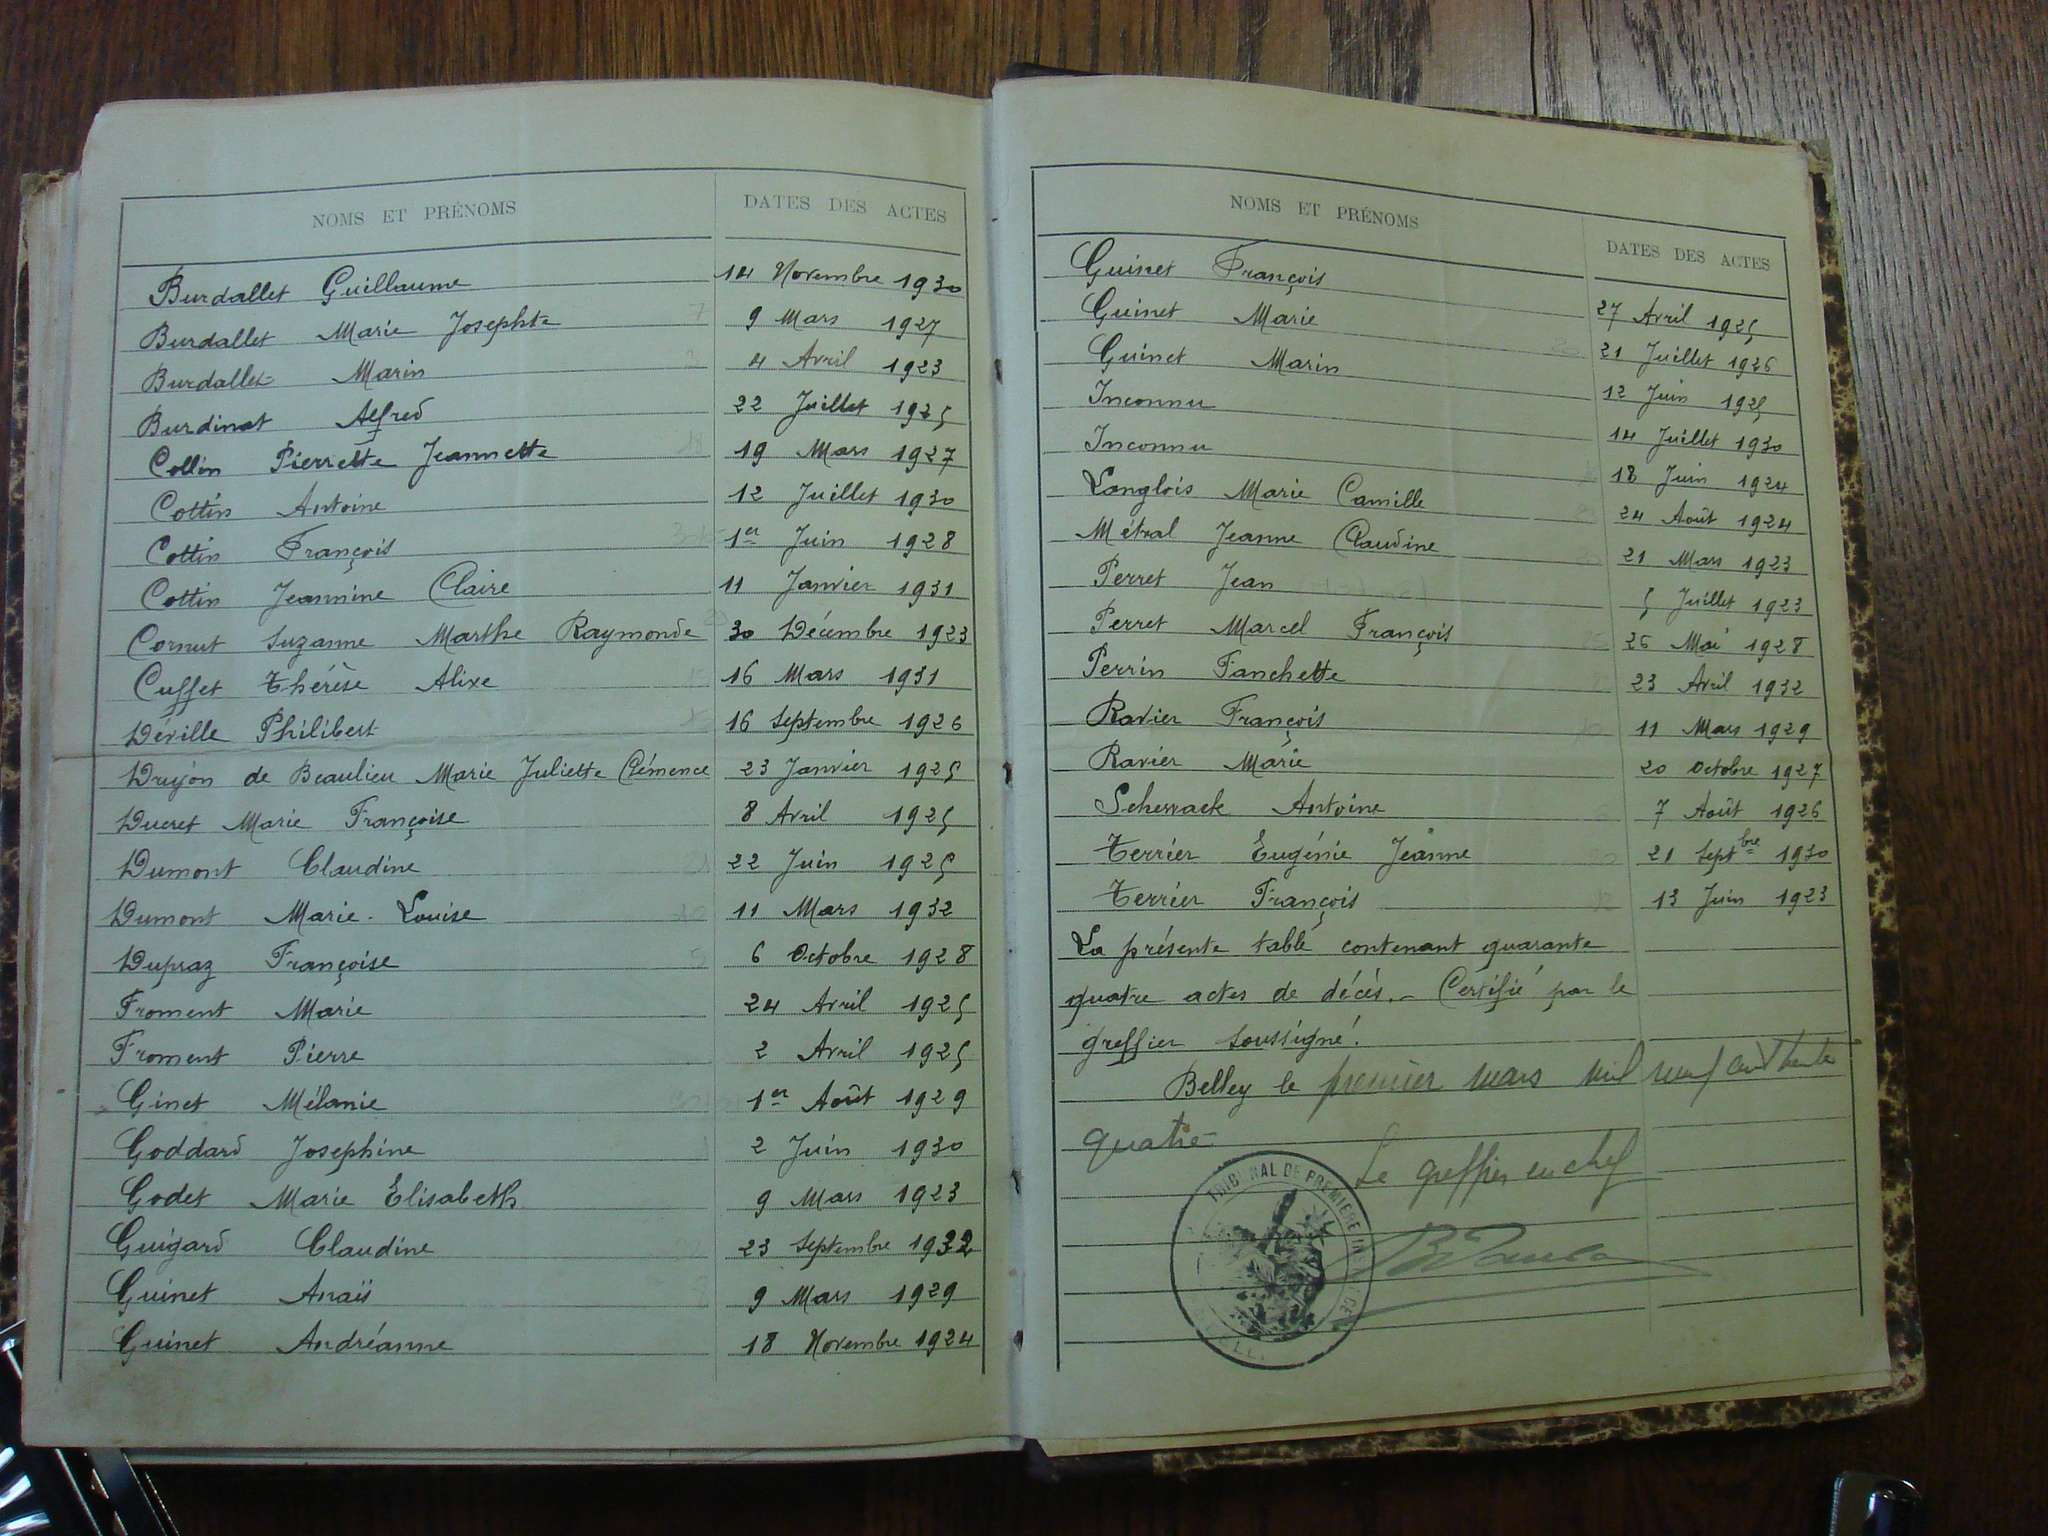 NOMS ET PRÉNOMS DATES DES ACTES
Burdallet Guillaume 14 Novembre 1930
Burdallet Marie Josephte 9 Mars 1927
Burdallet Marin 4 Avril 1923
Burdinat Alfred 22 Juillet 1925
Collin Pierrette Jeannette 19 Mars 1927
Cottin Antoine 12 Juillet 1930
Cottin François 1er Juin 1928
Cottin Jeannine Claire 11 Janvier 1931
Cornut Suzanne Marthe Raymonde 30 Décembre 1923
Cuffet Thérèse Alixe 16 Mars 1931
Déville Philibert 16 Septembre 1926
Drujon de Beaulieu Marie Juliette Clémence 23 Janvier 1925
Ducret Marie Françoise 8 Avril 1925
Dumont Claudine 22 Juin 1925
Dumont Marie-Louise 11 Mars 1932
Dupraz Françoise 6 Octobre 1928
Froment Marie 24 Avril 1925
Froment Pierre 2 Avril 1925
Ginet Mélanie 1er Août 1929
Goddard Josephine 2 Juin 1930
Godet Marie Elisabeth 9 Mars 1923
Guigard Claudine 23 Septembre 1932
Guinet Anaïs 9 Mars 1929
Guinet Andréanne 18 Novembre 1924
NOMS ET PRÉNOMS DATES DES ACTES
Guinet François 27 Avril 1925
Guinet Marie 21 Juillet 1926
Guinet Marin 12 Juin 1925
Inconnu 14 Juillet 1930
Inconnu 18 Juin 1924
Langlois Marie Camille 24 Août 1924
Métral Jeanne Claudine 21 Mars 1923
Perret Jean 5 Juillet 1923
Perret Marcel François 26 Mai 1928
Perrin Fanchette 23 Avril 1932
Ravier François 11 Mars 1929
Ravier Marie 20 Octobre 1927
Scherrack Antoine 7 Août 1926
Terrier Eugénie Jeanne 21 Septbre 1930
Terrier François 13 Juin 1923
La présente table contenant quarante
quatre actes de décès.- Certifié par le
greffier soussigné.
Belley le premier mars mil neuf cent trente
quatre
Le greffier en chef
TRIBUNAL DE PREMIÈRE INSTANCE